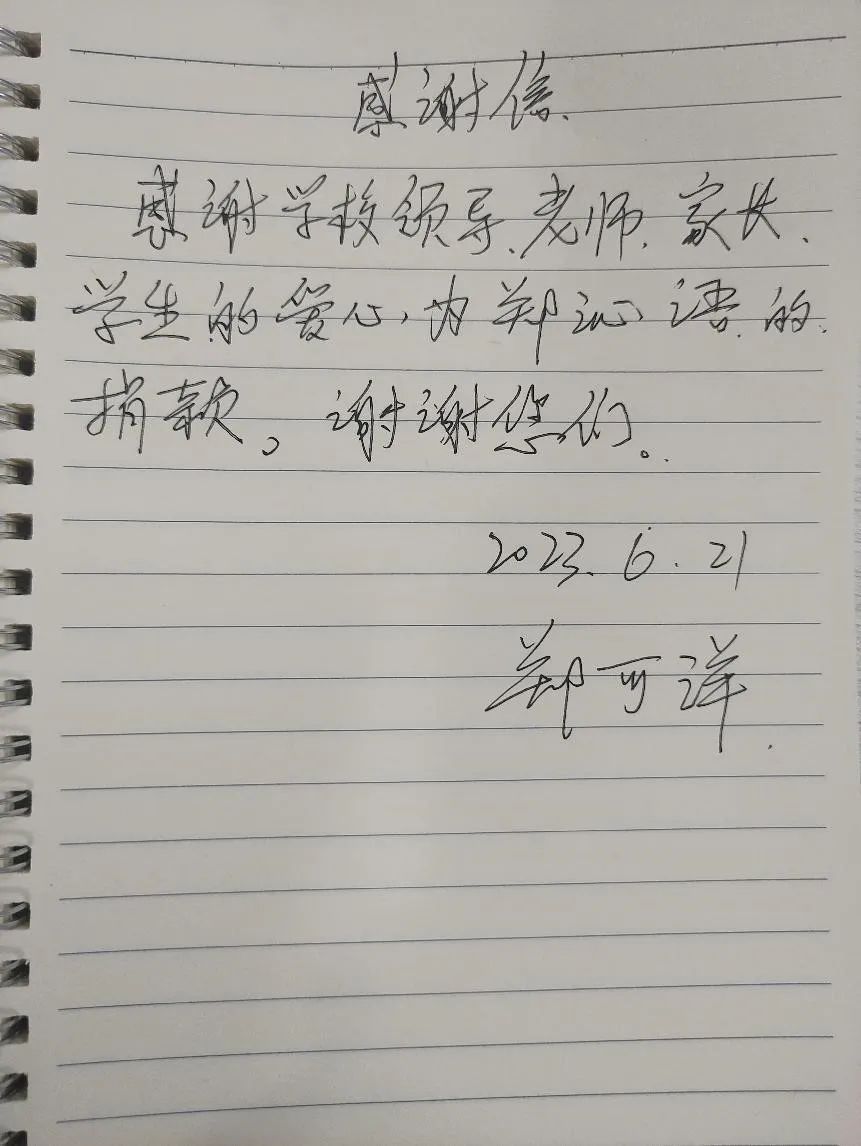 感谢信.
感谢学校领导、老师、家长、
学生的爱心,为郑沁语的
捐款。谢谢您们。
2023.6.21
郑可洋